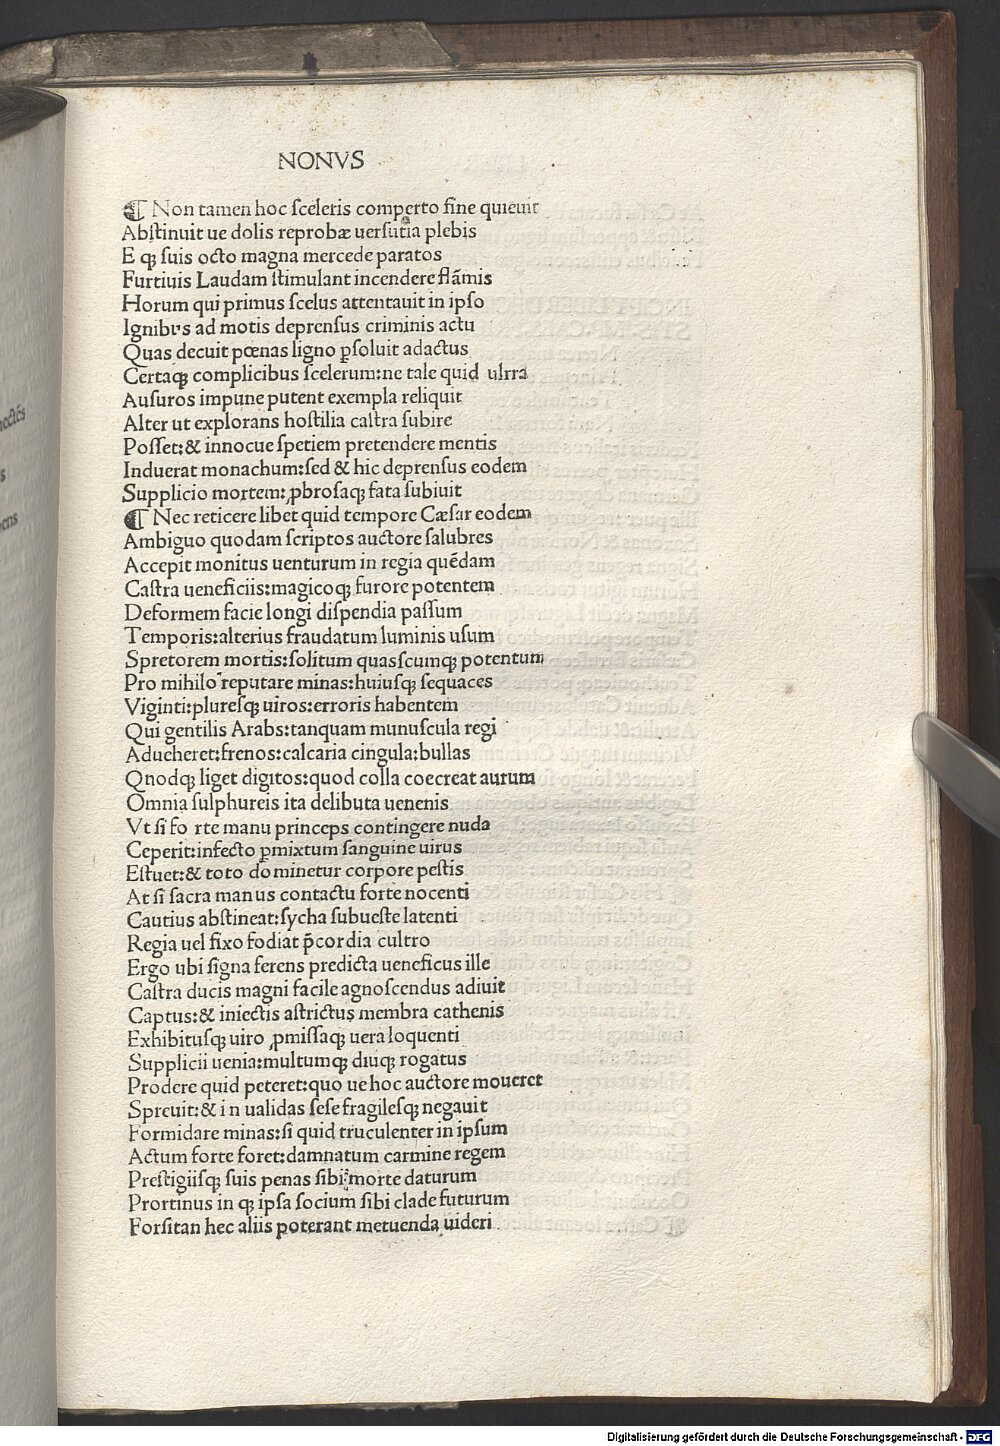 NONVS
¶ Non tamen hoc ſceleris comperto fine quieuit
Abſtinuit ue dolis reprobæ uerſutia plebis
E qꝫ ſuis octo magna mercede paratos
Furtiuis Laudam ſtimulant incendere flāmis
Horum qui primus ſcelus attentauit in ipſo
Ignibus ad motis deprenſus criminis actu
Quas decuit pœnas ligno ꝑſoluit adactus
Certaqꝫ complicibus ſcelerum:ne tale quid ulrra
Auſuros impune putent exempla reliquit
Alter ut explorans hoſtilia caſtra ſubire
Poſſet:& innocue ſpetiem pretendere mentis
Induerat monachum:ſed & hic deprenſus eodem
Supplicio mortem:ꝓbroſaqꝫ fata ſubiuit
¶ Nec reticere libet quid tempore Cæſar eodem
Ambiguo quodam ſcriptos auctore ſalubres
Accepit monitus uenturum in regia quēdam
Caſtra ueneficiis:magicoqꝫ furore potentem
Deformem facie longi diſpendia paſſum
Temporis:alterius fraudatum luminis uſum
Spretorem mortis:ſolitum quaſcumqꝫ potentum
Pro mihilo reputare minas:huiuſqꝫ ſequaces
Viginti:plureſqꝫ uiros:erroris habentem
Qui gentilis Arabs:tanquam munuſcula regi
Aducheret:frenos:calcaria cingula:bullas
Qnodqꝫ liget digitos:quod colla coecreat aurum
Omnia ſulphureis ita delibuta uenenis
Vt ſi fo rte manu princeps contingere nuda
Ceperit:infecto ꝑmixtum ſanguine uirus
Eſtuet:& toto do minetur corpore peſtis
At ſi ſacra manus contactu forte nocenti
Cautius abſtineat:ſycha ſubueſte latenti
Regia uel fixo fodiat p̄cordia cultro
Ergo ubi ſigna ferens predicta ueneficus ille
Caſtra ducis magni facile agnoſcendus adiuit
Captus:& iniectis aſtrictus membra cathenis
Exhibituſqꝫ uiro ꝓmiſſaqꝫ uera loquenti
Supplicii uenia:multumqꝫ diuqꝫ rogatus
Prodere quid peteret:quo ue hoc auctore moueret
Spreuit:& i n ualidas ſeſe fragileſqꝫ negauit
Formidare minas:ſi quid truculenter in ipſum
Actum forte foret:damnatum carmine regem
Preſtigiiſqꝫ ſuis penas ſibi:morte daturum
Prortinus in qꝫ ipſa ſocium ſibi clade futurum
Forſitan hec aliis poterant metuenda uideri
Digitalisierung gefördert durch die Deutsche Forschungsgemeinschaft - DFG